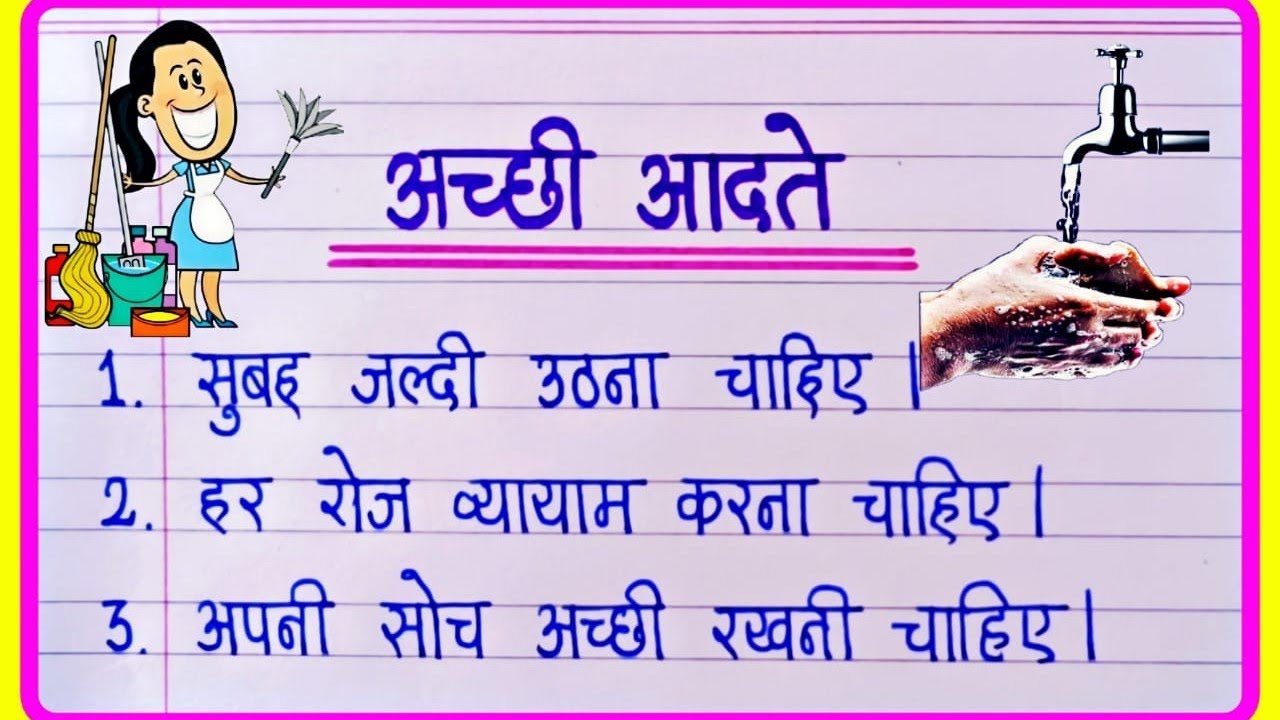 अच्छी आदते
1. सुबह जल्दी उठना चाहिए।
2. हर रोज व्यायाम करना चाहिए।
3. अपनी सोच अच्छी रखनी चाहिए।